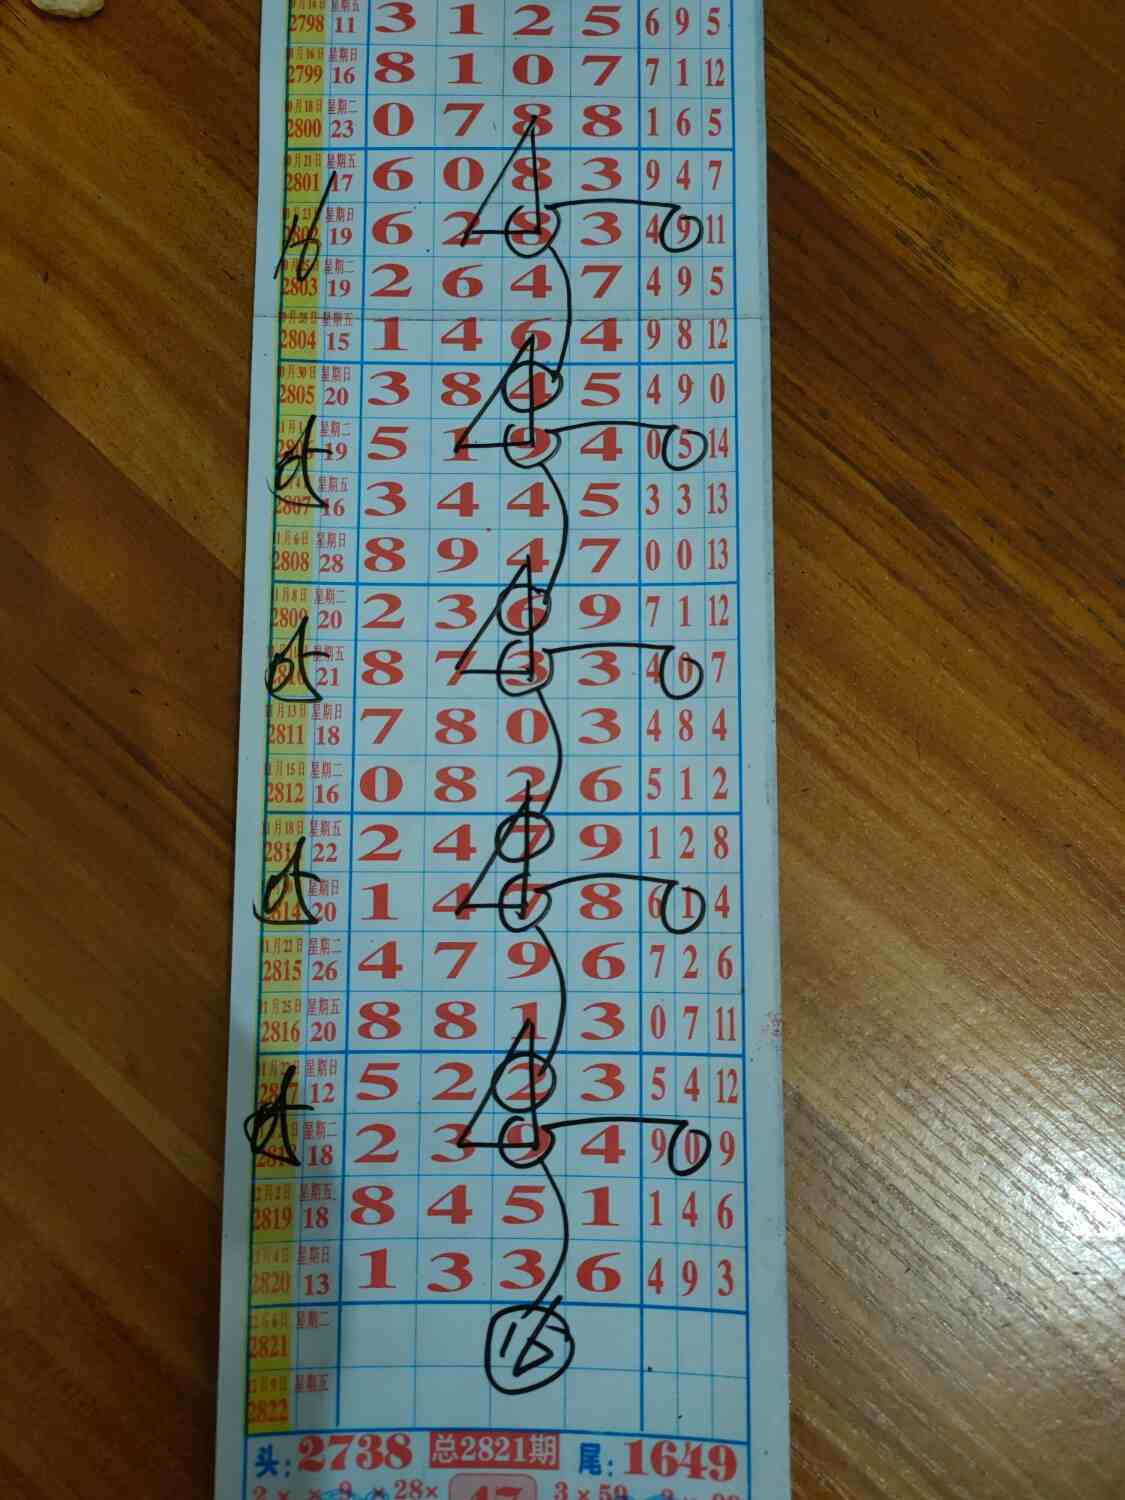 2798 星期五 11 3 1 2 5 6 9 5
10月16日 星期日 2799 16 8 1 0 7 7 1 12
10月18日 星期二 2800 23 0 7 8 8 1 6 5
10月21日 星期五 2801 17 6 0 8 3 9 4 7
星期日 19 6 2 8 3 4 9 11
星期二 2803 19 2 6 4 7 4 9 5
星期五 2804 15 1 4 6 4 9 8 12
10月30日 星期日 2805 20 3 8 4 5 4 9 0
星期二 19 5 1 9 4 0 5 14
星期五 2807 16 3 4 4 5 3 3 13
11月6日 星期日 2808 28 8 9 4 7 0 0 13
11月8日 星期二 2809 20 2 3 6 9 7 1 12
星期五 21 8 7 3 3 4 0 7
11月13日 星期日 2811 18 7 8 0 3 4 8 4
11月15日 星期二 2812 16 0 8 2 6 5 1 2
11月18日 星期五 22 2 4 7 9 1 2 8
星期日 20 1 4 7 8 6 1 4
11月22日 星期二 2815 26 4 7 9 6 7 2 6
11月25日 星期五 2816 20 8 8 1 3 0 7 11
星期日 12 5 2 2 3 5 4 12
星期二 18 2 3 9 4 9 0 9
12月2日 星期五 2819 18 8 4 5 1 1 4 6
12月4日 星期日 2820 13 1 3 3 6 4 9 3
12月6日 星期二 2821
12月9日 星期五 2822
头:2738 总2821期 尾:1649